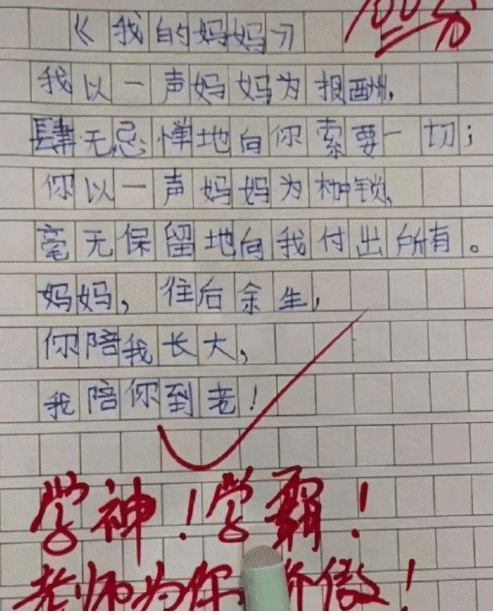 《我的妈妈》
100分
我以一声妈妈为报酬,
肆无忌惮地向你索要一切;
你以一声妈妈为枷锁,
毫无保留地向我付出所有。
妈妈,往后余生,
你陪我长大,
我陪你到老!
学神!学霸!
老师为你 傲!